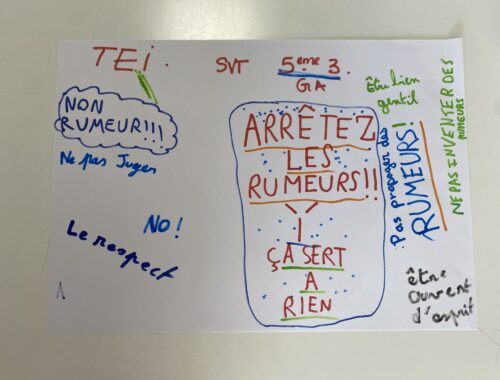 TEi.
SVT
5eme 3.
GA
NON
RUMEUR!!!
Ne pas Juger
NO!
Le respect
ARRÊTEZ
LES
RUMEURS!!
ÇA SERT
A
RIEN
Être bien
gentil
Pas propager des
RUMEURS!
NE PAS INVENTER DES
RUMEURS
être
ouvert
d'esprit